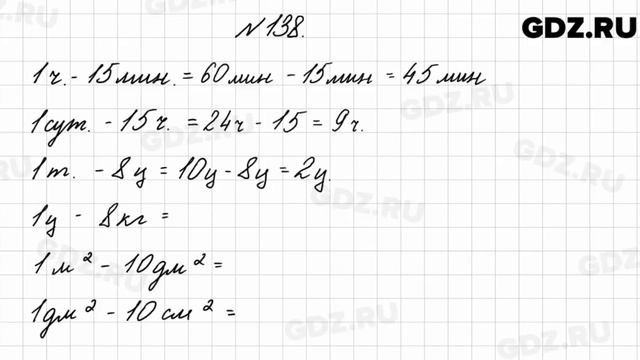 №138.
GDZ.RU
1ч. - 15мин. = 60мин - 15мин = 45мин
1сут. - 15ч. = 24ч - 15 = 9ч.
1т. - 8ц = 10ц - 8ц = 2ц.
1ц - 8кг =
1м² - 10дм² =
1дм² - 10см² =